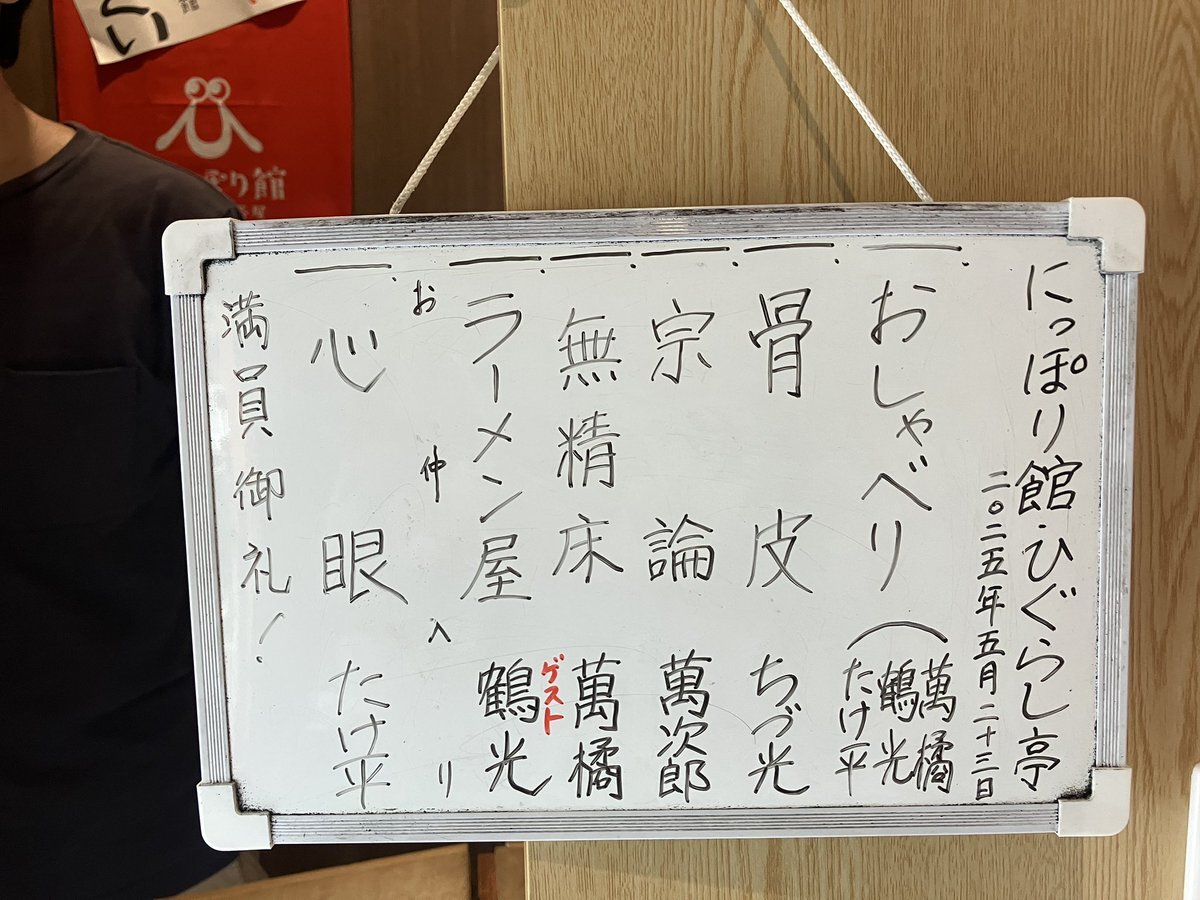 にっぽり館・ひぐらし亭
二〇二五年五月二十三日
一、おしゃべり(萬橘
鶴光
たけ平
一、骨皮 ちづ光
一、宗論 萬次郎
一、無精床 萬橘
ゲスト
一、ラーメン屋 鶴光
お仲入り
一、心眼 たけ平
満員御礼!
ぽり館
くい